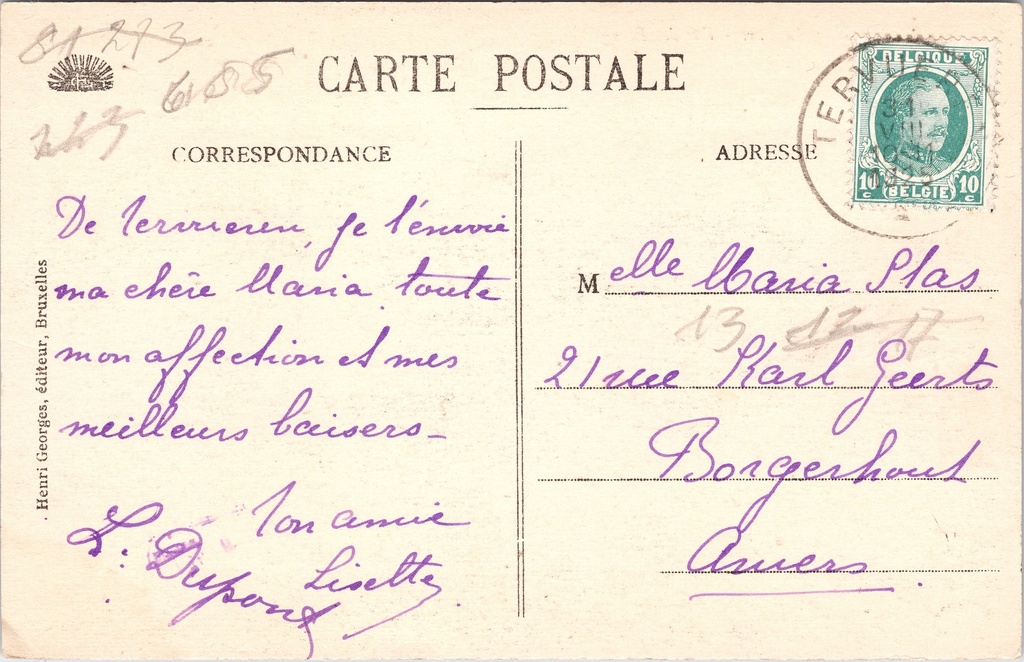 81 273
6.55
CARTE POSTALE
CORRESPONDANCE
ADRESSE
BELGIQUE
10 c BELGIË 10 c
TERVUEREN
31
VIII
1925
De Tervueren, je t'envoie
ma chère Maria toute
mon affection et mes
meilleurs baisers-
Ton amie
Lisette
L. Dupont
Melle Maria Stas
13 12 17
21 rue Karl Geerts
Borgerhout
Anvers
Henri Georges, éditeur, Bruxelles